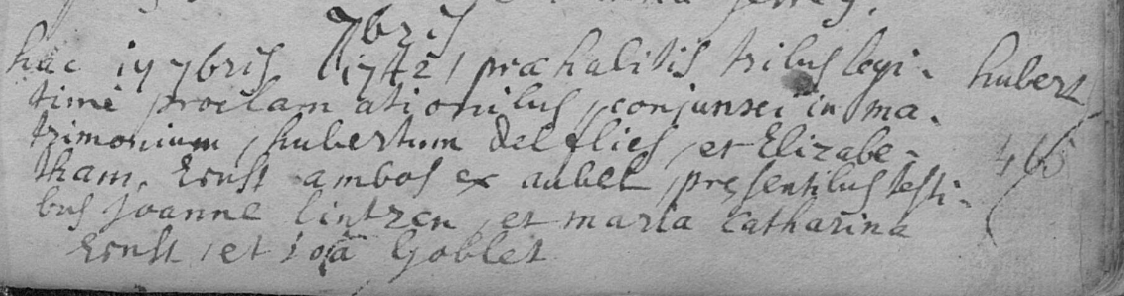 7bris
hac 17 7bris 1742, præhabitis tribus legi- hubert
time proclamationibus, conjunxi in ma-
trimonium, hubertum delflies, et Elizabe-
tham, Ernst ambos ex aubel, presentibus testi-
bus Joanne lintzen, et maria Catharina
Ernst, et joã Goblet